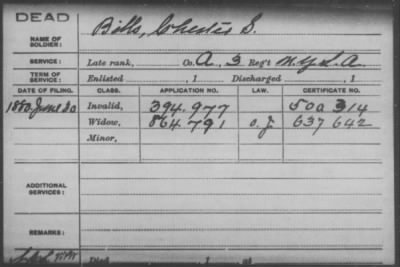 DEAD
NAME OF SOLDIER: Bills, Chester S.
SERVICE: Late rank, Co. A, 3 Reg't N.Y.L.A.
TERM OF SERVICE: Enlisted , 1 Discharged , 1
DATE OF FILING. CLASS. APPLICATION NO. LAW. CERTIFICATE NO.
1880 June 30 Invalid, 394.977 500 314
Widow, 864.791 O.L. 637 642
Minor,
ADDITIONAL SERVICES:
REMARKS:
Died , 1 , at